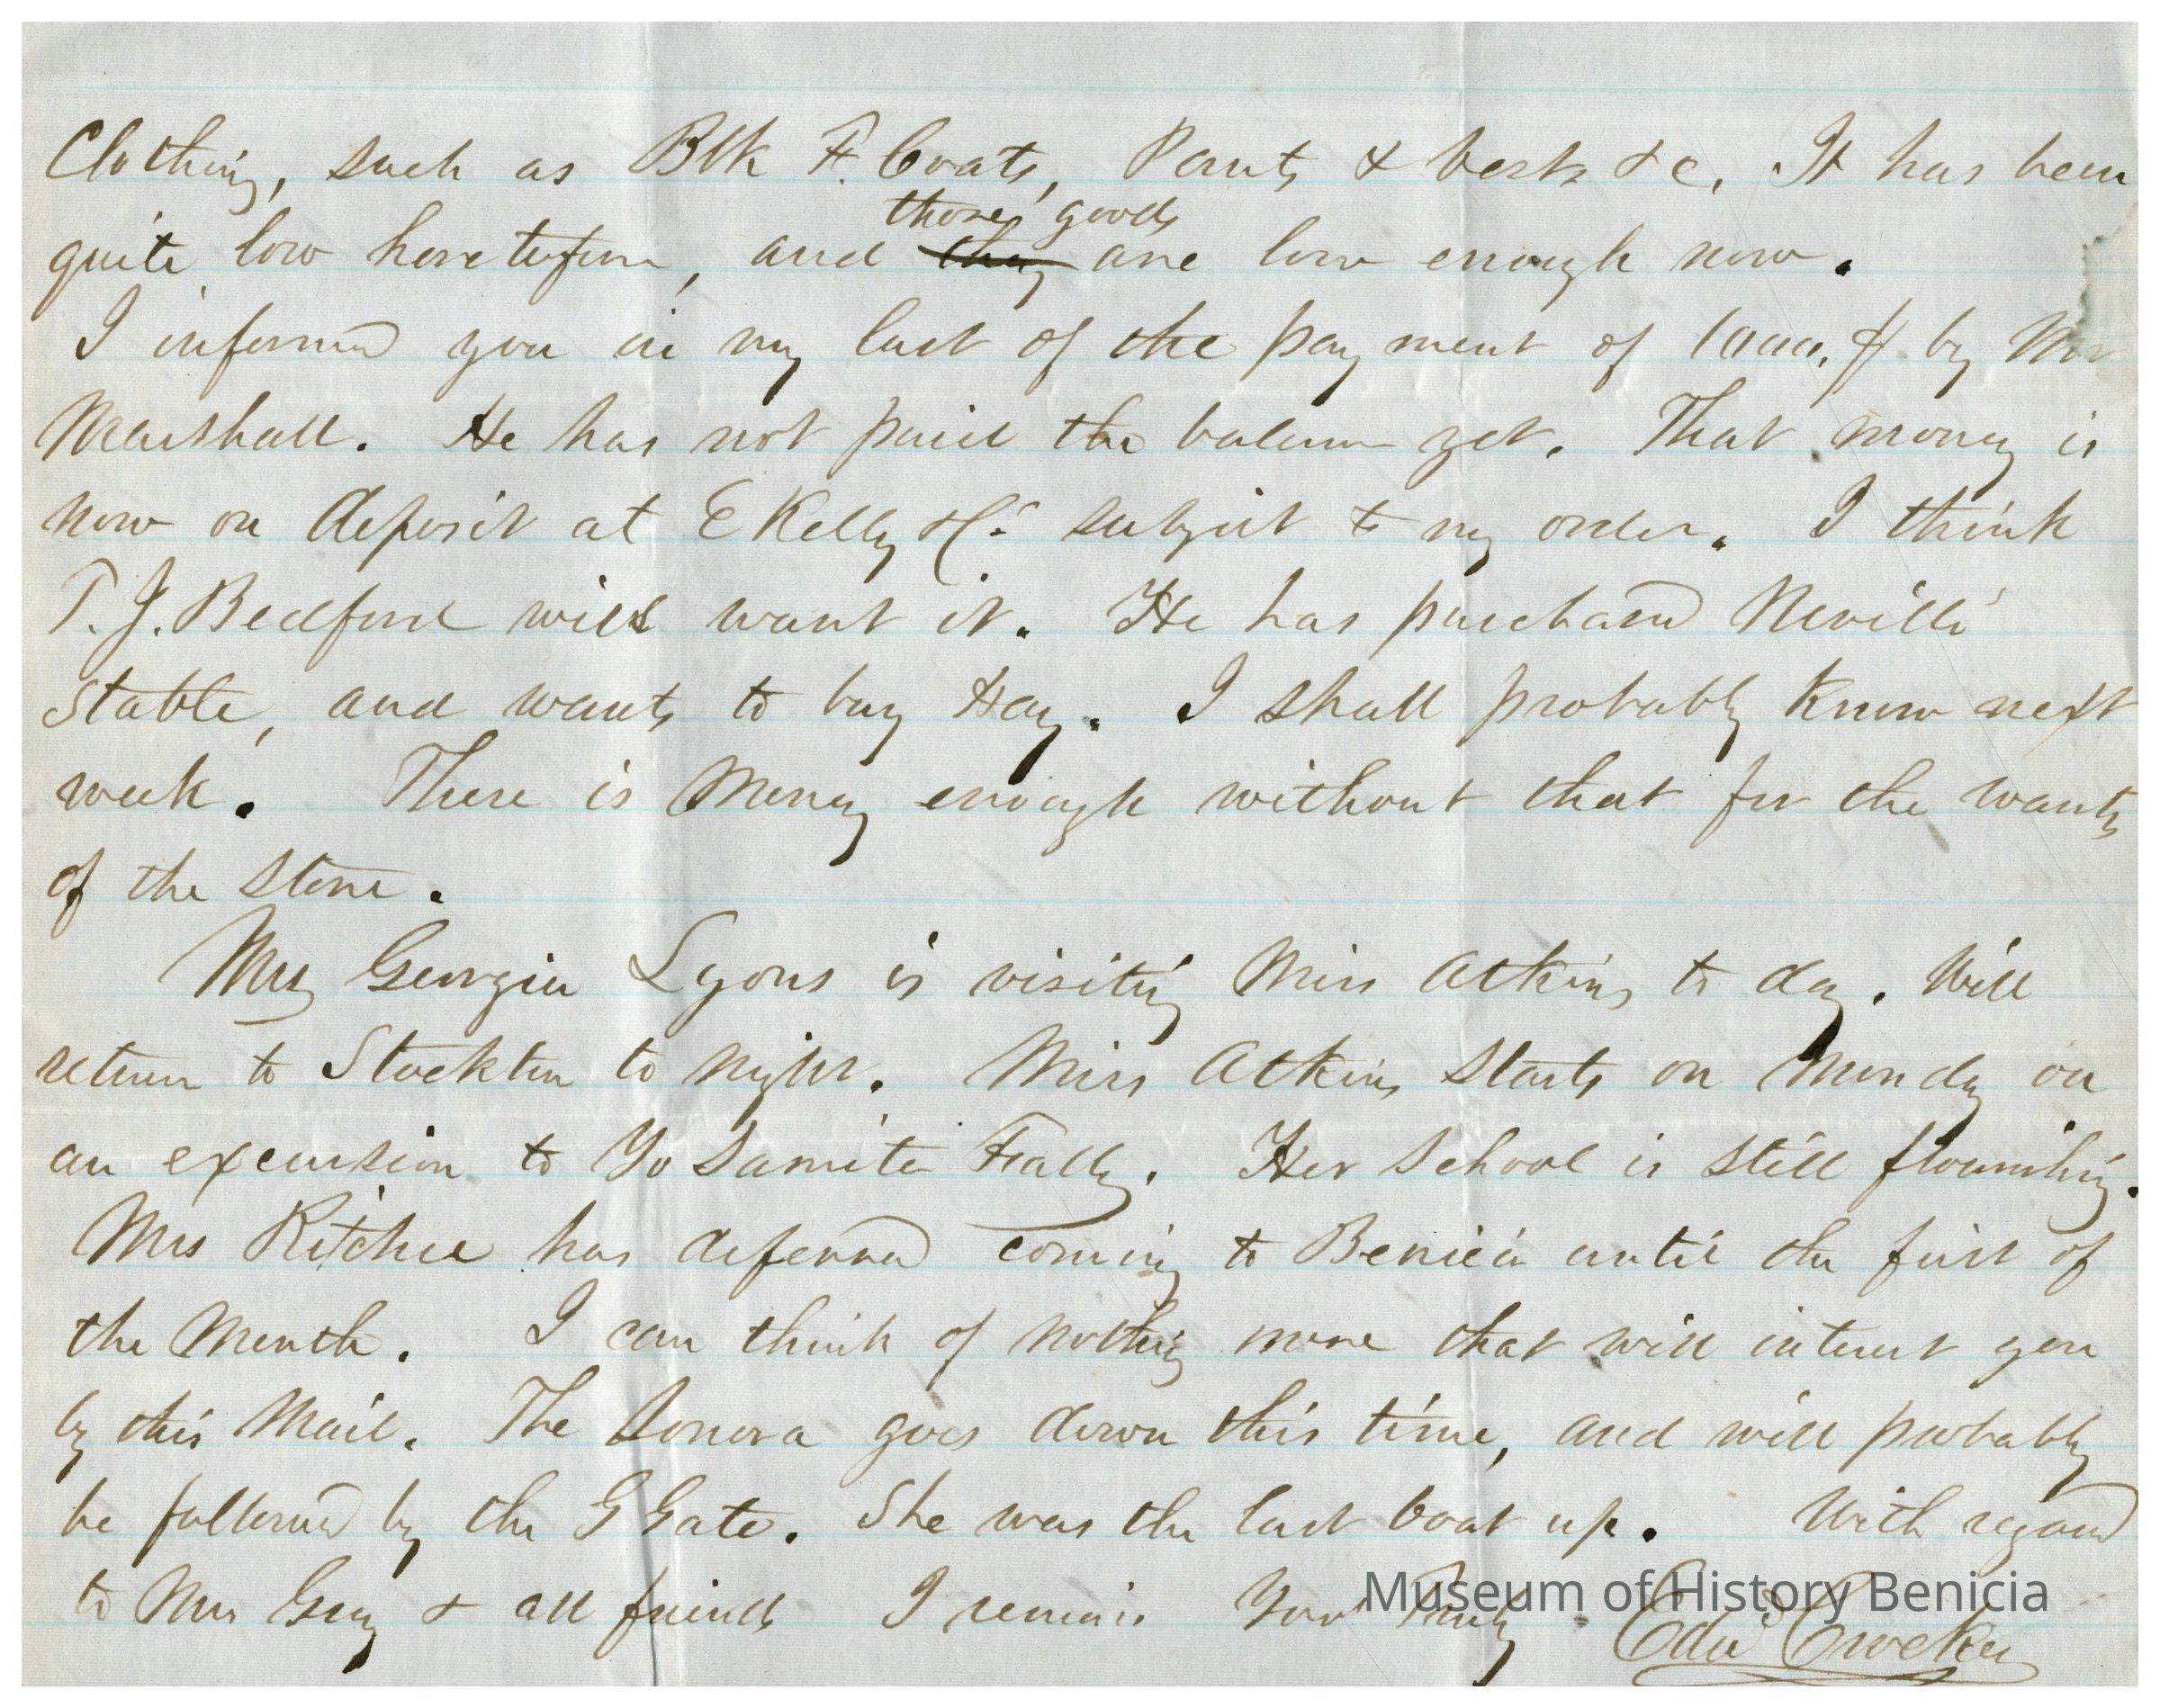 Clothing, such as Blk F. Coats, Pants & Vests &c. It has been
those goods
quite low heretofore, and they are low enough now.
I informed you in my last of the payment of 1000. $ by Mr
Marshall. He has not paid the balance yet. That money is
now on deposit at E Kelly & Co subject to my order. I think
T. J. Bedford will want it. He has purchased Nevills'
Stable, and wants to buy Hay. I shall probably know next
week. There is Money enough without that for the wants
of the store.
Mrs Georgia Lyons is visiting Miss Atkins to day. Will
return to Stockton to night. Miss Atkins starts on Monday on
an excursion to Yo Samite Falls. Her School is still flourishing.
Mrs Ritchie has deferred coming to Benicia until the first of
the Month. I can think of nothing more that will interest you
by this Mail. The Sonora goes down this time, and will probably
be followed by the G Gate. She was the last boat up. With regard
to Mrs Gray & all friends I remain Your Truly
Museum of History Benicia